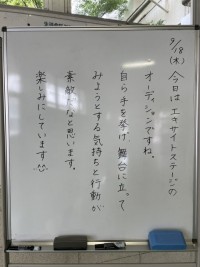 9/18(木) 今日はエキサイトステージの
オーディションですね。
自ら手を挙げ舞台に立って
みようとする気持ちと行動が
素敵だなと思います。
楽しみにしています